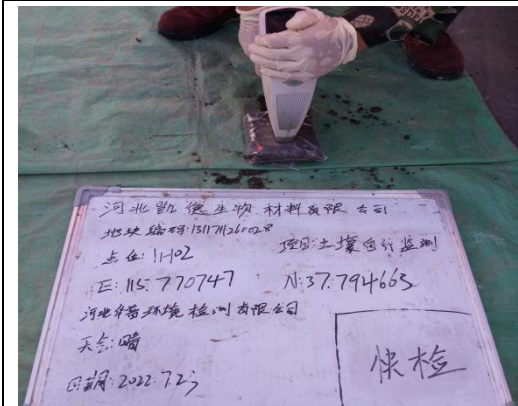 河北凯德生物材料有限公司
地块编码:1311711260028
点位:1H02 项目:土壤自行监测
E:115.770747 N:37.794663
河北华普环境检测有限公司
天气:晴
日期:2022.7.23
快检